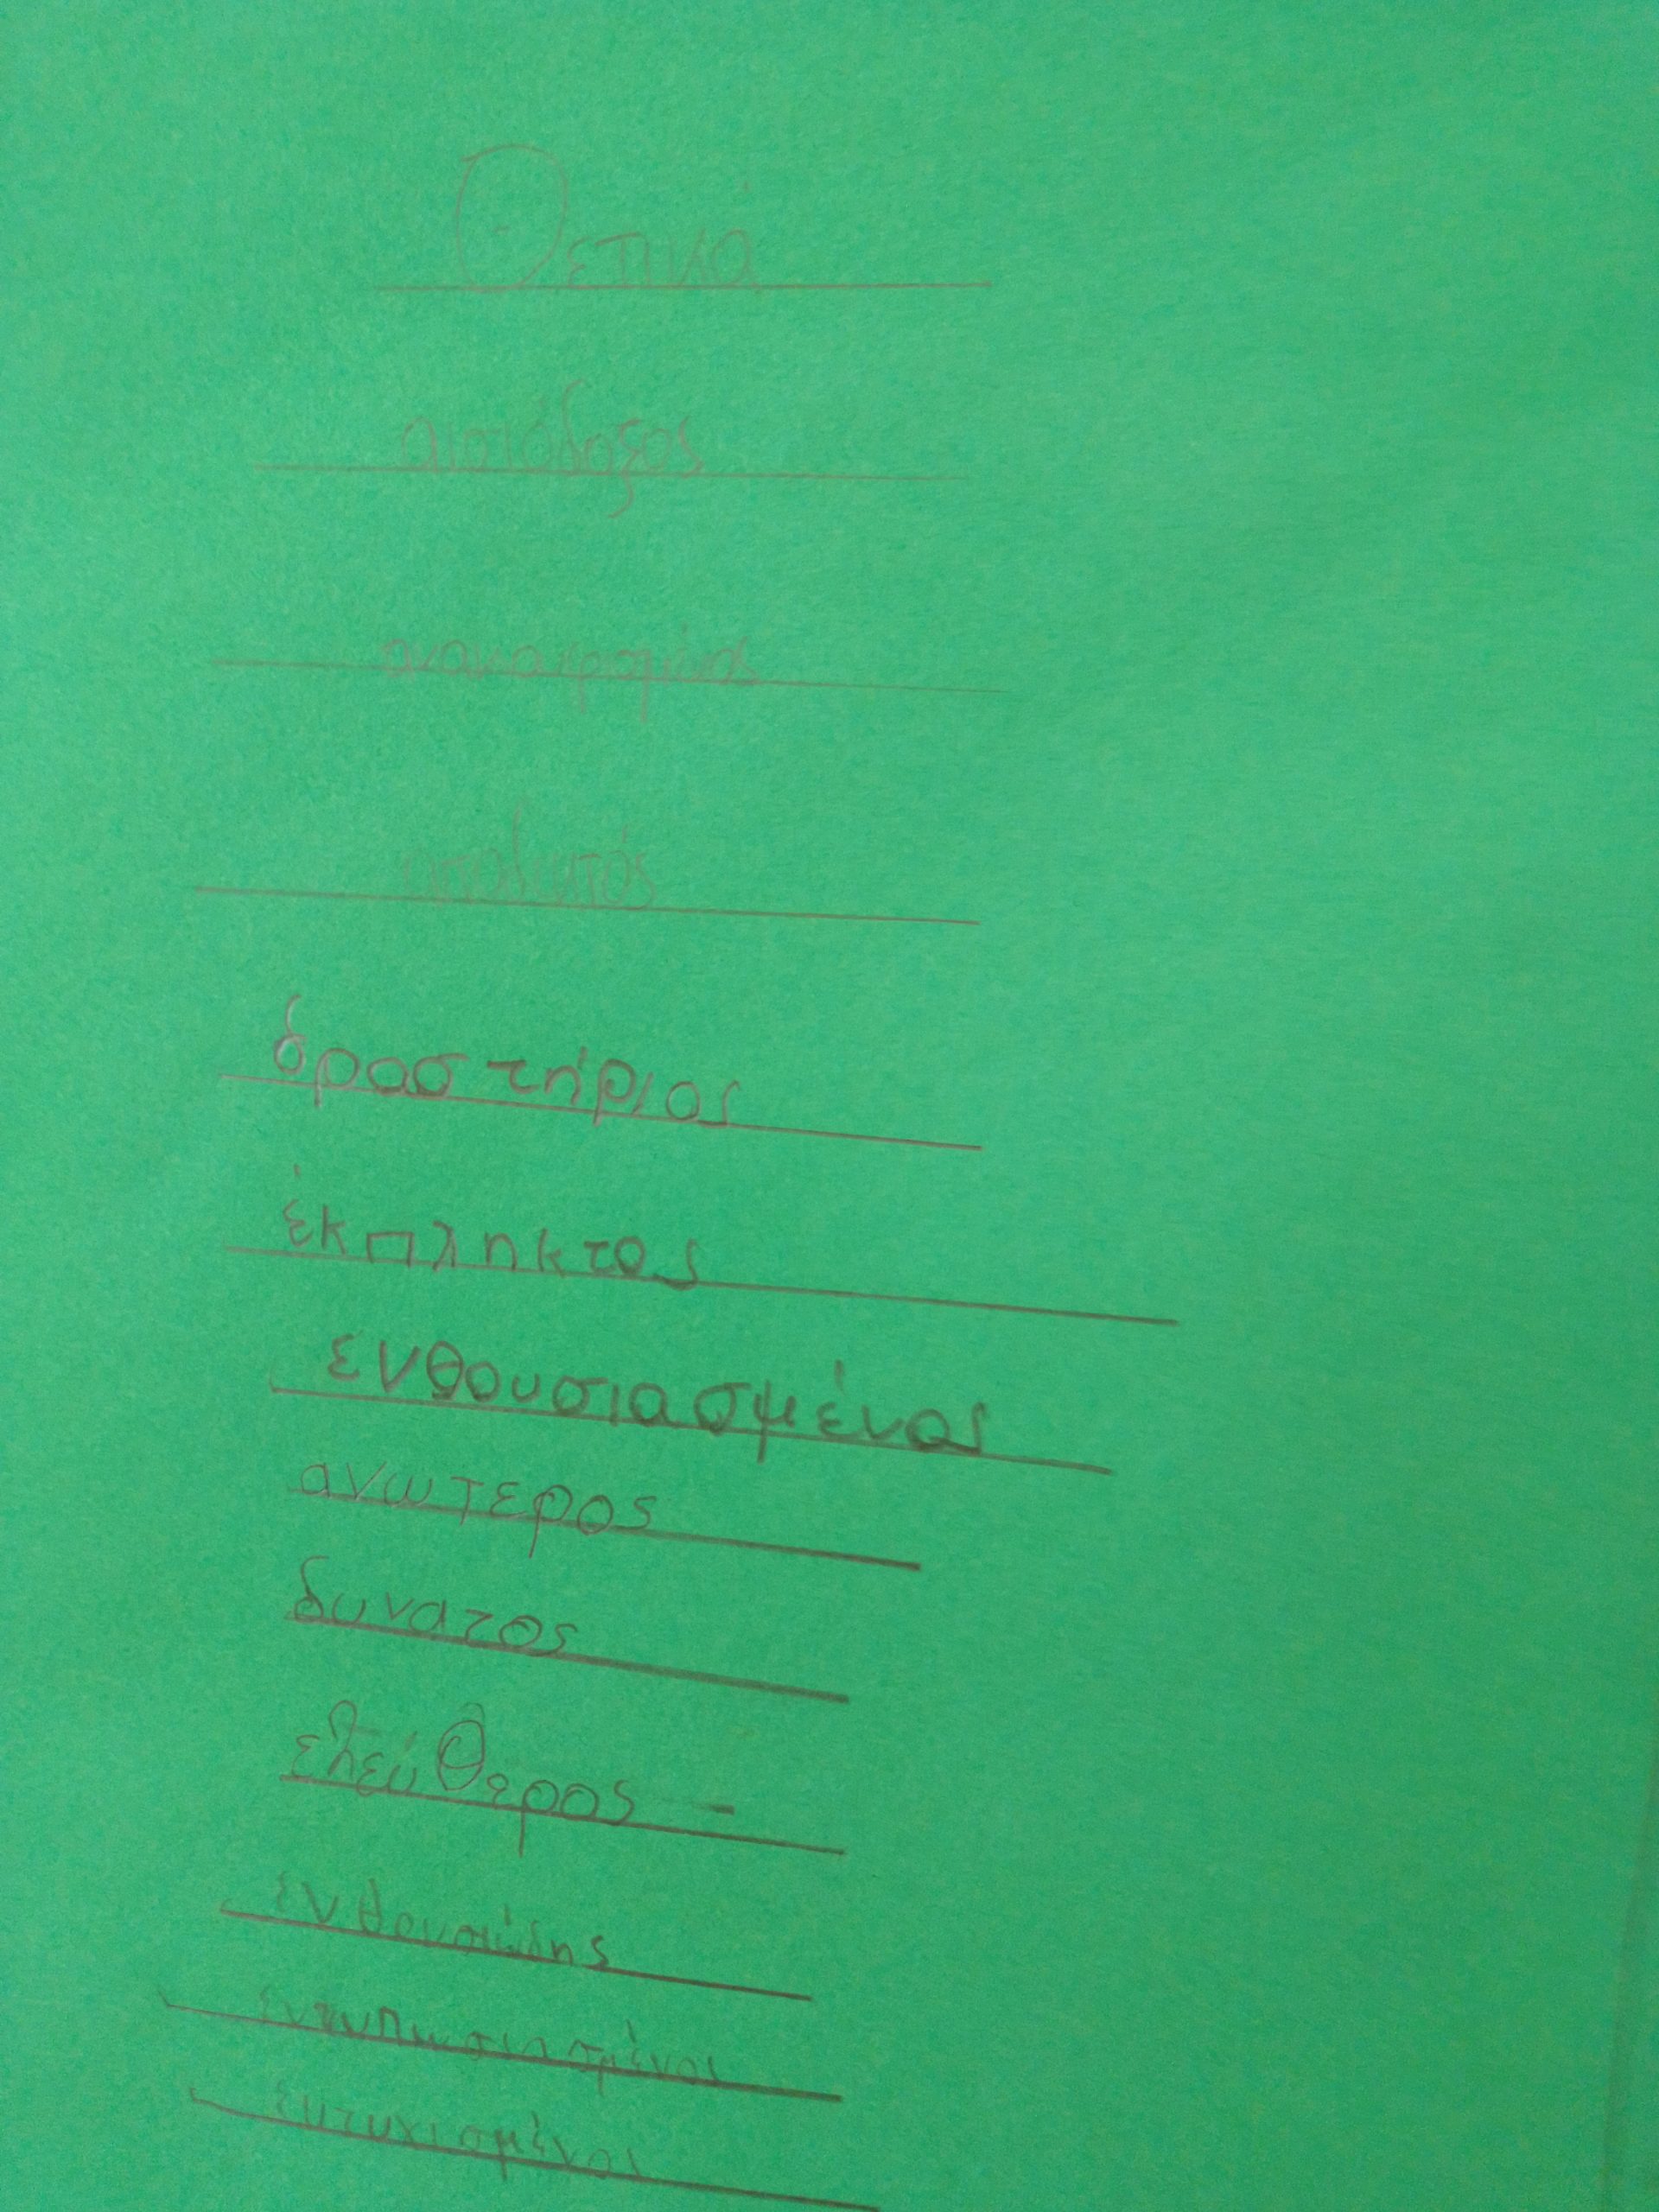 Θετικά
αισιόδοξος
δραστήριος
έκπληκτος
ενθουσιασμένος
ανωτερος
δυνατος
ελεύθερος –
ενθουσιώδης
εντυπωσιασμένος
ευτυχισμένος